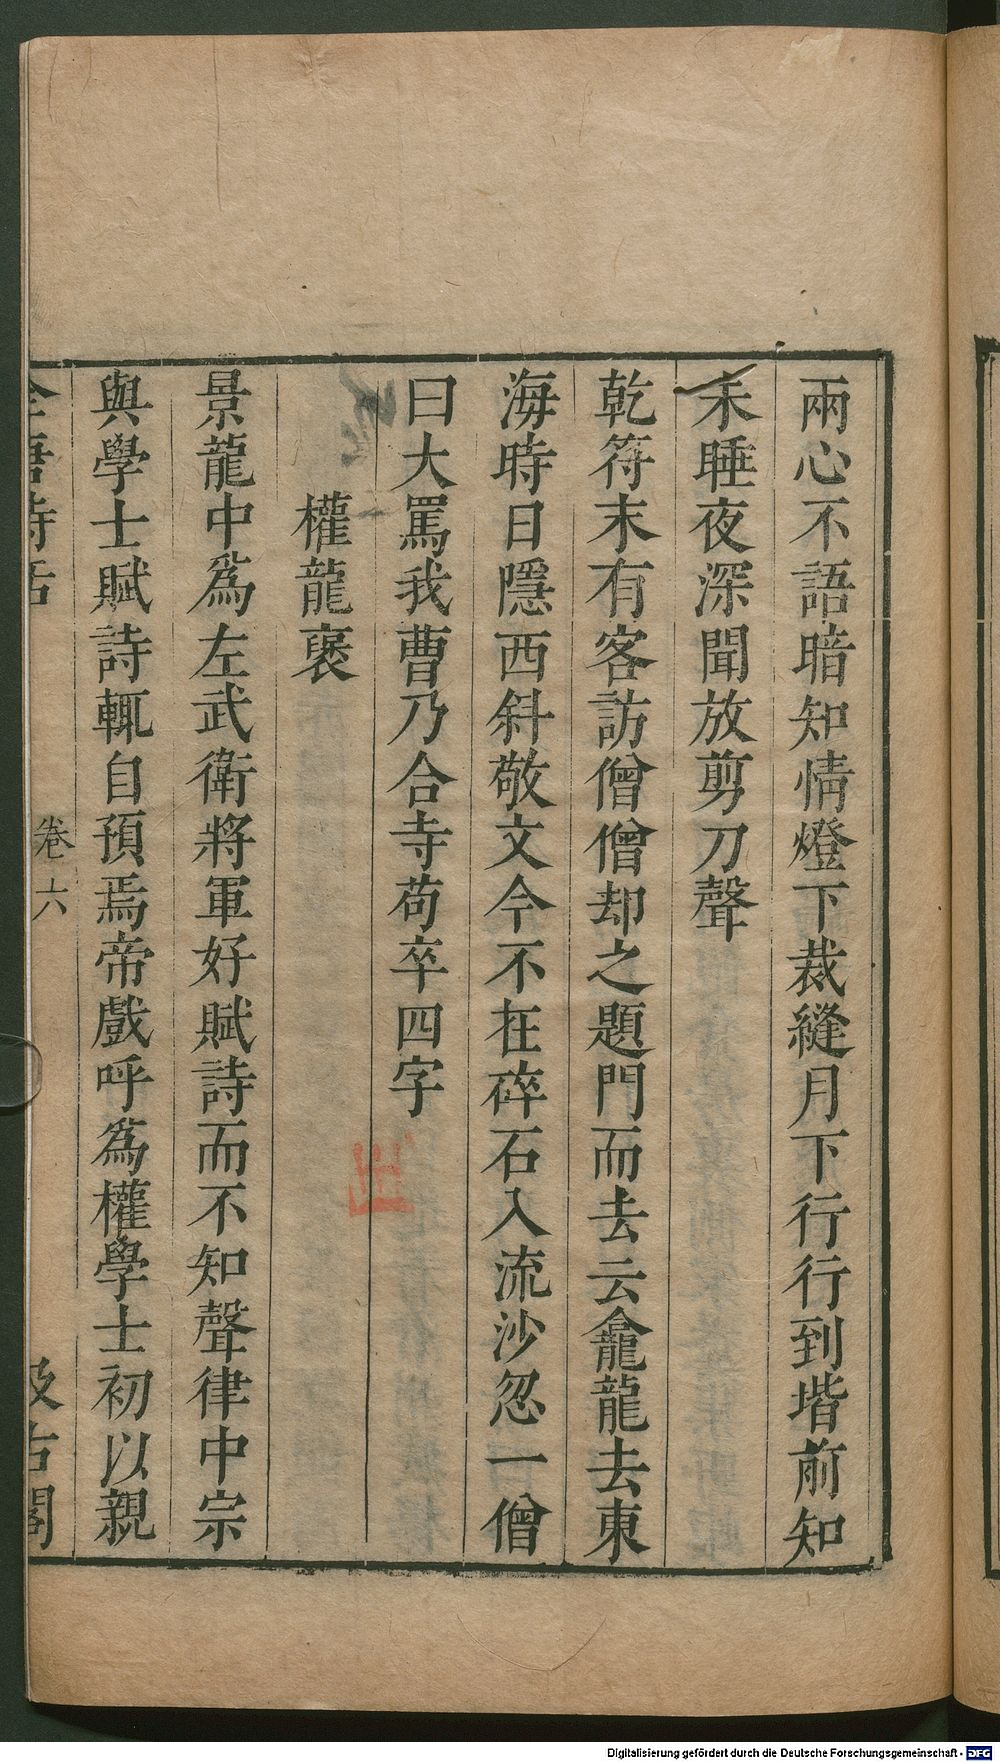 兩心不語暗知情燈下裁縫月下行行到堦前知
未睡夜深聞放剪刀聲
乾符末有客訪僧僧却之題門而去云龕龍去東
海時日隱西斜敬文今不在碎石入流沙忽一僧
曰大罵我曹乃合寺苟卒四字
權龍褒
景龍中爲左武衛將軍好賦詩而不知聲律中宗
與學士賦詩輒自預焉帝戲呼爲權學士初以親
全唐詩話 卷六 汲古閣
Digitalisierung gefördert durch die Deutsche Forschungsgemeinschaft - DFG